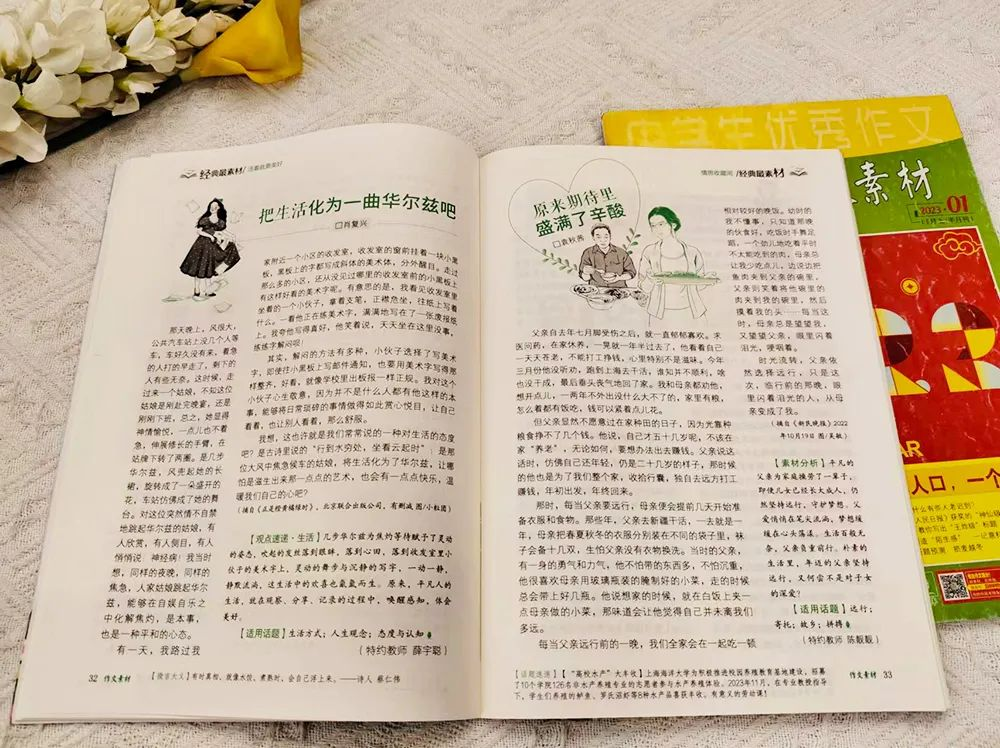 经典最素材/活着就要美好
把生活化为一曲华尔兹吧
□肖复兴
那天晚上，风很大，
公共汽车站上没几个人等
车，车好久没有来，着急
的人打的早走了，剩下的
人有些无奈。这时候，走
过来一个姑娘，不知这位
姑娘是刚赴完晚宴，还是
刚刚下班，总之，她显得
神情愉悦，一点儿也不着
急，伸展修长的手臂，在
站牌下转了两圈。是几步
华尔兹，风兜起她的长
裙，旋转成了一朵盛开的
花，车站仿佛成了她的舞
台。对这位突然情不自禁
地跳起华尔兹的姑娘，有
人欣赏，有人侧目，有人
悄悄说 神经病！我当时
想，同样的夜晚，同样的
焦急，人家姑娘跳起华尔
兹，能够在自娱自乐之
中化解焦灼，是本事，
也是一种平和的心态。
有一天，我路过我
家附近一个小区的收发室，收发室的窗前挂着一块小黑
板，黑板上的字都写成斜体的美术体，分外醒目。走过
那么多的小区，还从没见过哪里的收发室前的小黑板上
有这样好看的美术字呢。有意思的是，我看见收发室里
坐着的一个小伙子，拿着支笔，正襟危坐，往纸上写着
什么。一看他正在练美术字，满满地写了在一张废报纸
上。我夸他写得真好，他笑着说，天天坐在这里没事，
练练字解闷呗！
其实，解闷的方法有多种，小伙子选择了写美术
字，即使往小黑板上写邮件通知，也要用美术字写得那
样整齐，好看，就像学校里出板报一样正规。我对这个
小伙子心生敬意，因为并不是什么人都有他这样的本
事，能够将日常琐碎的事情做得如此赏心悦目，让自己
看着，也让别人看着，那么舒服。
我想，这也许就是我们常常说的一种对生活的态度
吧？是古诗里说的“行到水穷处，坐看云起时”；是那
位大风中焦急候车的姑娘，将生活化为了华尔兹，让哪
怕是滋生出来那一点点的艺术，也会有一点点快乐，温
暖我们自己的心吧？
（摘自《正是橙黄橘绿时》，北京联合出版公司，有删减 图/小粒圆）
【观点速递·生活】几步华尔兹为焦灼等待赋予了灵动
的姿态，吹起的发丝落到眼眸，落到心田，落到收发室里小
伙子的美术字上，灵动的舞步与沉静的写字，一动一静，
静默流淌，这生活中的欢喜也氤氲而生。原来，平凡人的
生活，就在观察、分享、记录的过程中，唤醒感知，体会
美好。
【适用话题】生活方式；人生观念；态度与认知
（特约教师 薛宇聪）
32 作文素材 【微言大义】有时真相，就像水饺，煮熟时，会自己浮上来。——诗人 蔡仁伟
情思收藏阁/经典最素材
原来期待里
盛满了辛酸
□袁秋茜
父亲自去年七月脚受伤之后，就一直郁郁寡欢。求
医问药，在家休养，一晃就一年半过去了，他看着自己
一天天苍老，不能打工挣钱，心里特别不是滋味。今年
三月份他没听劝，跑到上海去干活，谁知并不顺利，啥
也没干成，最后垂头丧气地回了家。我和母亲都劝他，
想开点儿，一两年不外出没什么大不了的，家里有粮，
怎么着都有饭吃，钱可以紧着点儿花。
但父亲显然不愿意过在家种田的日子，因为光靠种
粮食挣不了几个钱。他说，自己才五十几岁呢，不该在
家“养老”，无论如何，要想办法出去赚钱。父亲说这
话时，仿佛自己还年轻，仍是二十几岁的样子，那时候
的他也是为了我们整个家，收拾行囊，独自去远方打工
赚钱，年初出发，年终回来。
那时，每当父亲要远行，母亲便会提前几天开始准
备衣服和食物。那些年，父亲去新疆干活，一去就是一
年，母亲把春夏秋冬的衣服分别装在不同的袋子里，袜
子会备十几双，生怕父亲没有衣物换洗。当时的父亲，
有一身的勇气和力气，他不怕带的东西多，不怕沉重，
他很喜欢母亲用玻璃瓶装的腌制好的小菜，走的时候
总会带上好几瓶。他说想家的时候，就在白饭上夹一
点母亲做的小菜，那味道会让他觉得自己并未离我们
多远。
每当父亲远行前的一晚，我们全家会在一起吃一顿
相对较好的晚饭。幼时的
我不懂事，只知道那晚
的伙食好，吃饭时手舞足
蹈，一个劲儿地吃着平时
不太能吃到的肉，母亲总
让我少吃点儿，边说边把
鱼肉夹到父亲的碗里，
父亲则笑着将他碗里的
肉夹到我的碗里，然后
摸着我的头……每当这
时，母亲总是望望我，
又望望父亲，眼里闪着
泪光，哽咽着。
时光流转，父亲依
然选择远行，只是这
次，临行前的那晚，眼
里闪着泪光的人，从母
亲变成了我。
（摘自《新民晚报》2022
年10月19日 图/吴敏）
【素材分析】平凡的
父亲为家庭操劳了一辈子，
即使儿女已经长大成人，仍
然坚持远行，守护梦想。父
爱悄悄在笔尖流淌，梦想缓
缓在心头荡漾。生活百般无
奈，父亲负重前行。朴素的
生活里，年迈的父亲坚持
远行，又何尝不是对子女
的深爱？
【适用话题】远行；
寄托；故乡；拼搏
（特约教师 陈靓靓）
【话题速递】【“高校水产”大丰收】上海海洋大学为积极推进校园养殖教育基地建设，招募
了10个学院126名非水产养殖专业的志愿者参与水产养殖体验。2023年11月，在专业教授指导
下，学生们养殖的鲈鱼、罗氏沼虾等8种水产品喜获丰收。有意义的劳动课！
作文素材 33
中学生优秀作文
素材
2023·01
AR
人口，一个